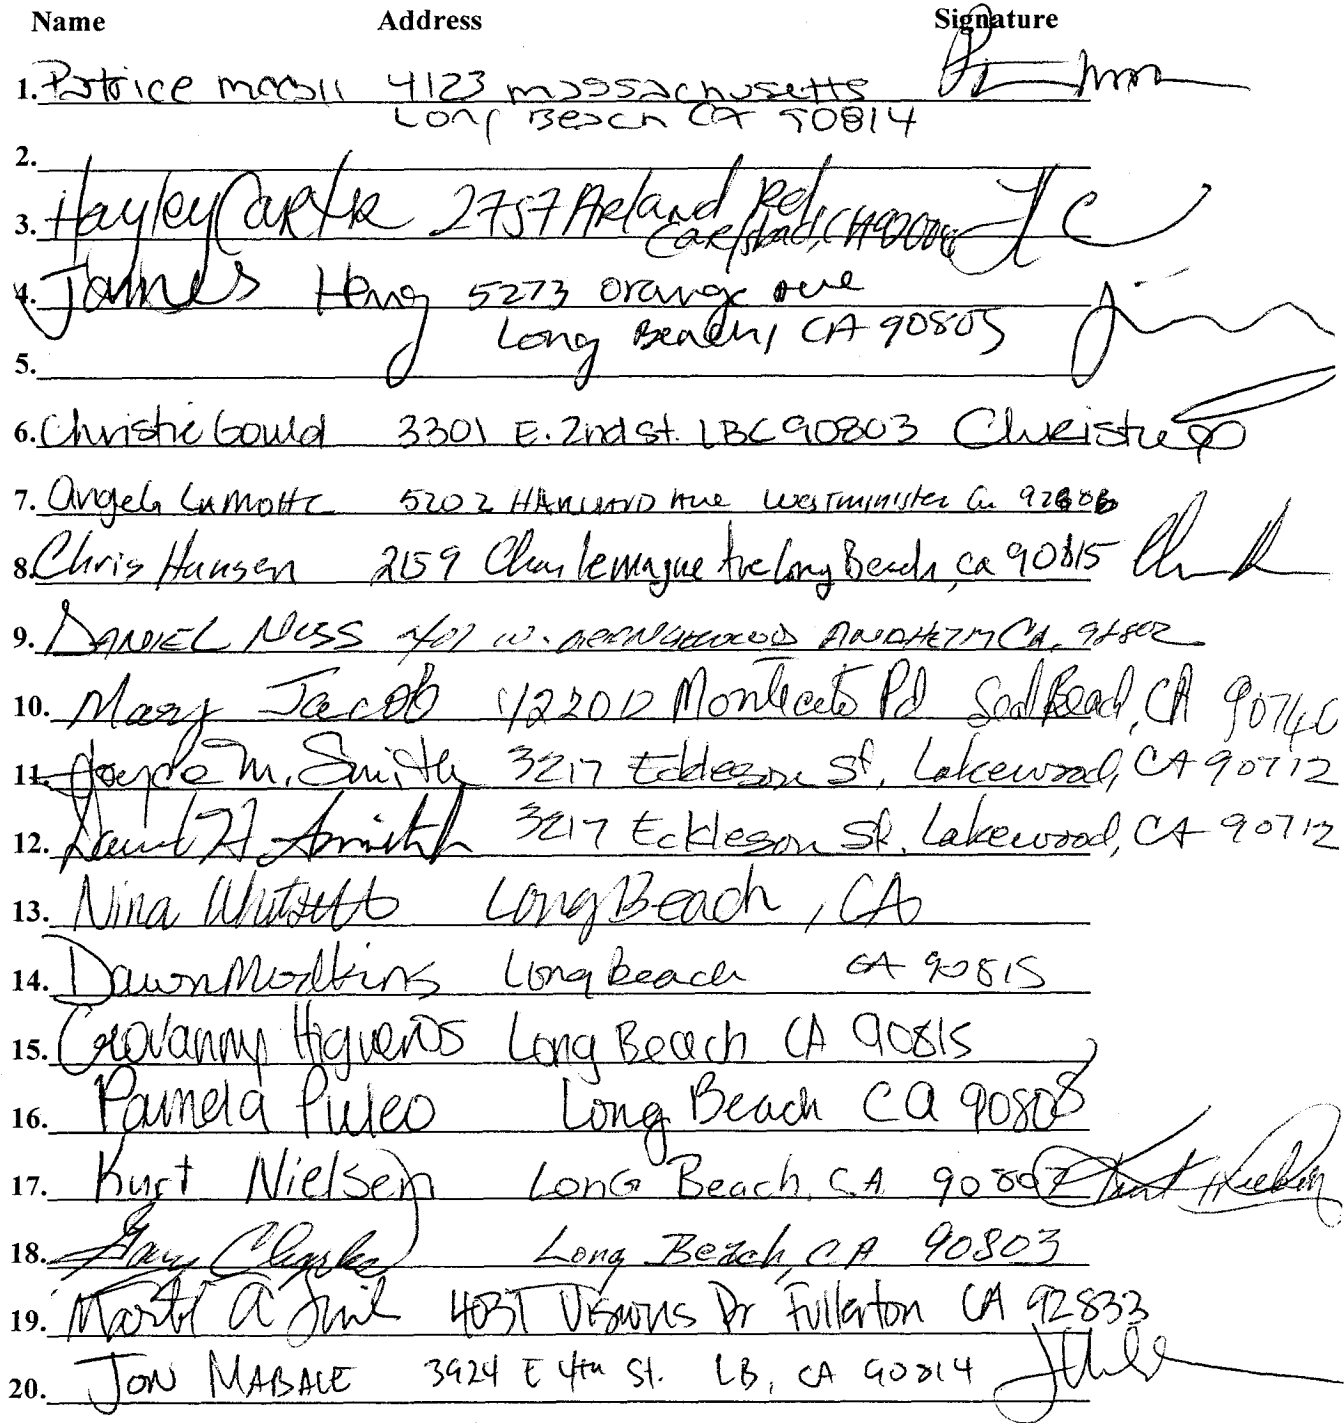 Name Address Signature
1. Patrice 4123 massachusetts
Long Beach CA 90814
2.
3. Hayley Carter 2757 Arland Rd
Carlsbad, CA
4. James Heng 5273 orange ave
Long Beach, CA 90805
5.
6. Christie Gould 3301 E. 2nd St. LBC 90803 Christie
7. Angela LaMotte 5202 HARVARD Ave Westminister Ca
8. Chris Hansen 2159 Charlemagne Ave Long Beach, ca 90815
9. DANIEL NUSS W. ANAHEIM CA.
10. Mary Jacob Montecito Rd Seal Beach, CA 90740
11. Joyce M. Smith 3217 Eckleson St, Lakewood, CA 90712
12. David H Smith 3217 Eckleson St, Lakewood, CA 90712
13. Nina Whitsett Long Beach, CA
14. Dawn Modkins Long beach CA 90815
15. Geovanny Higueros Long Beach CA 90815
16. Pamela Puleo Long Beach CA 90808
17. Kurt Nielsen Long Beach, CA Kurt Nielsen
18. Gary Clarke Long Beach, CA 90803
19. A Dr Fullerton CA 92833
20. JON MABALE 3924 E 4th St. LB, CA 90814